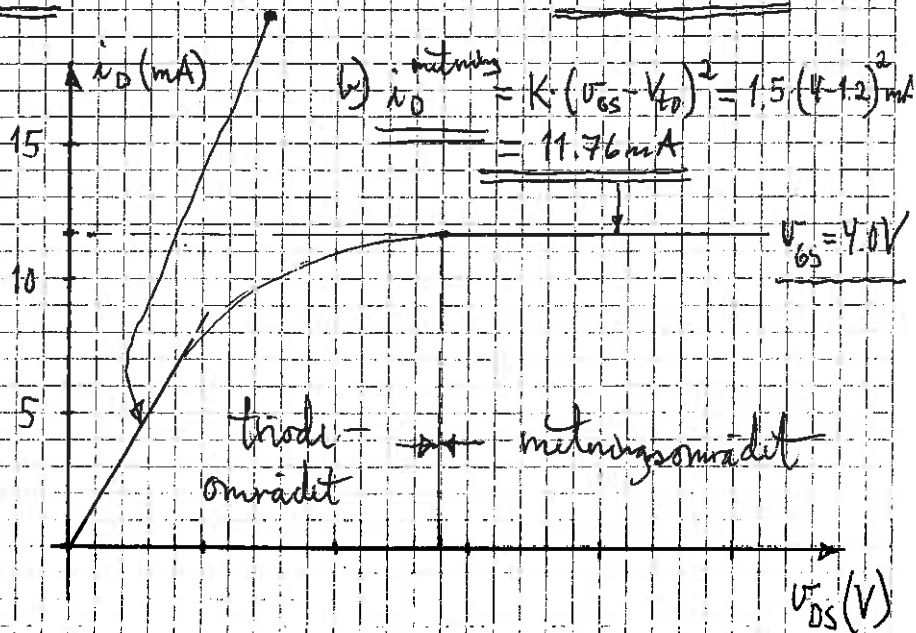 i_D (mA)
b) i_D^mätning = K·(v_GS - V_t0)² = 1.5·(4-1.2)² mA
= 11.76 mA
15
v_GS = 4.0V
10
5
triode-
området
mätningsområdet
v_DS (V)